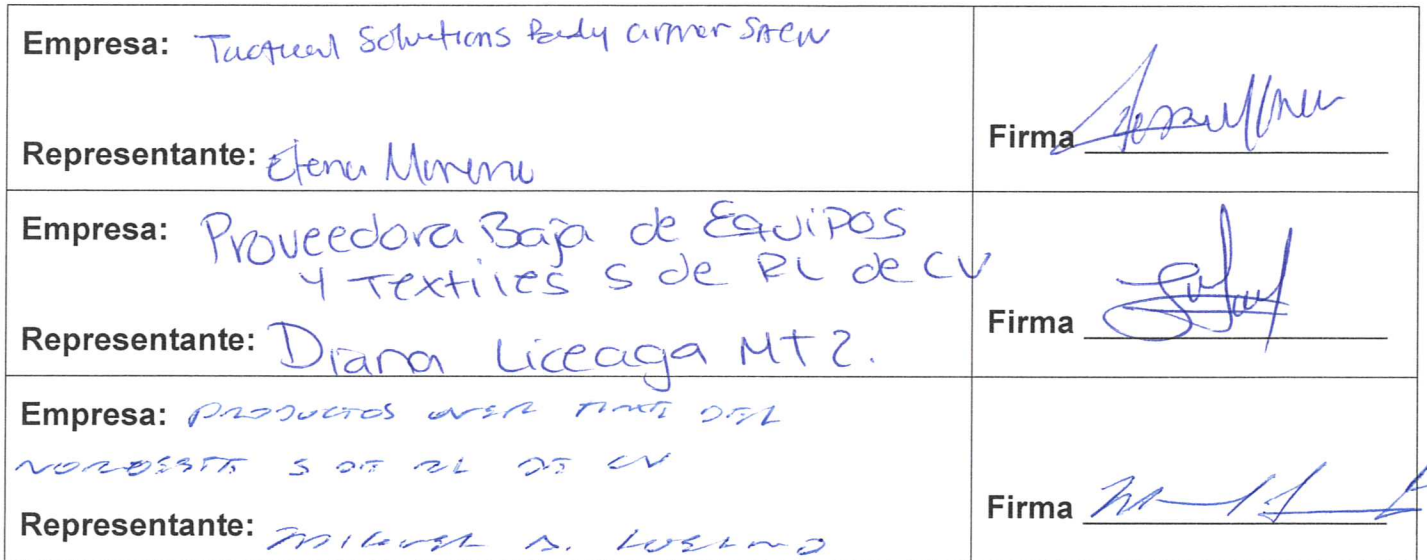 Empresa: Tactical Solutions Body armor SACV
Firma
Representante: Elena Moreno
Empresa: Proveedora Baja de Equipos
y Textiles S de RL de CV
Firma
Representante: Diana Liceaga MTZ.
Empresa: PRODUCTOS OVER TIME DEL
NOROESTE S DE RL DE CV
Firma
Representante: MIGUEL A.